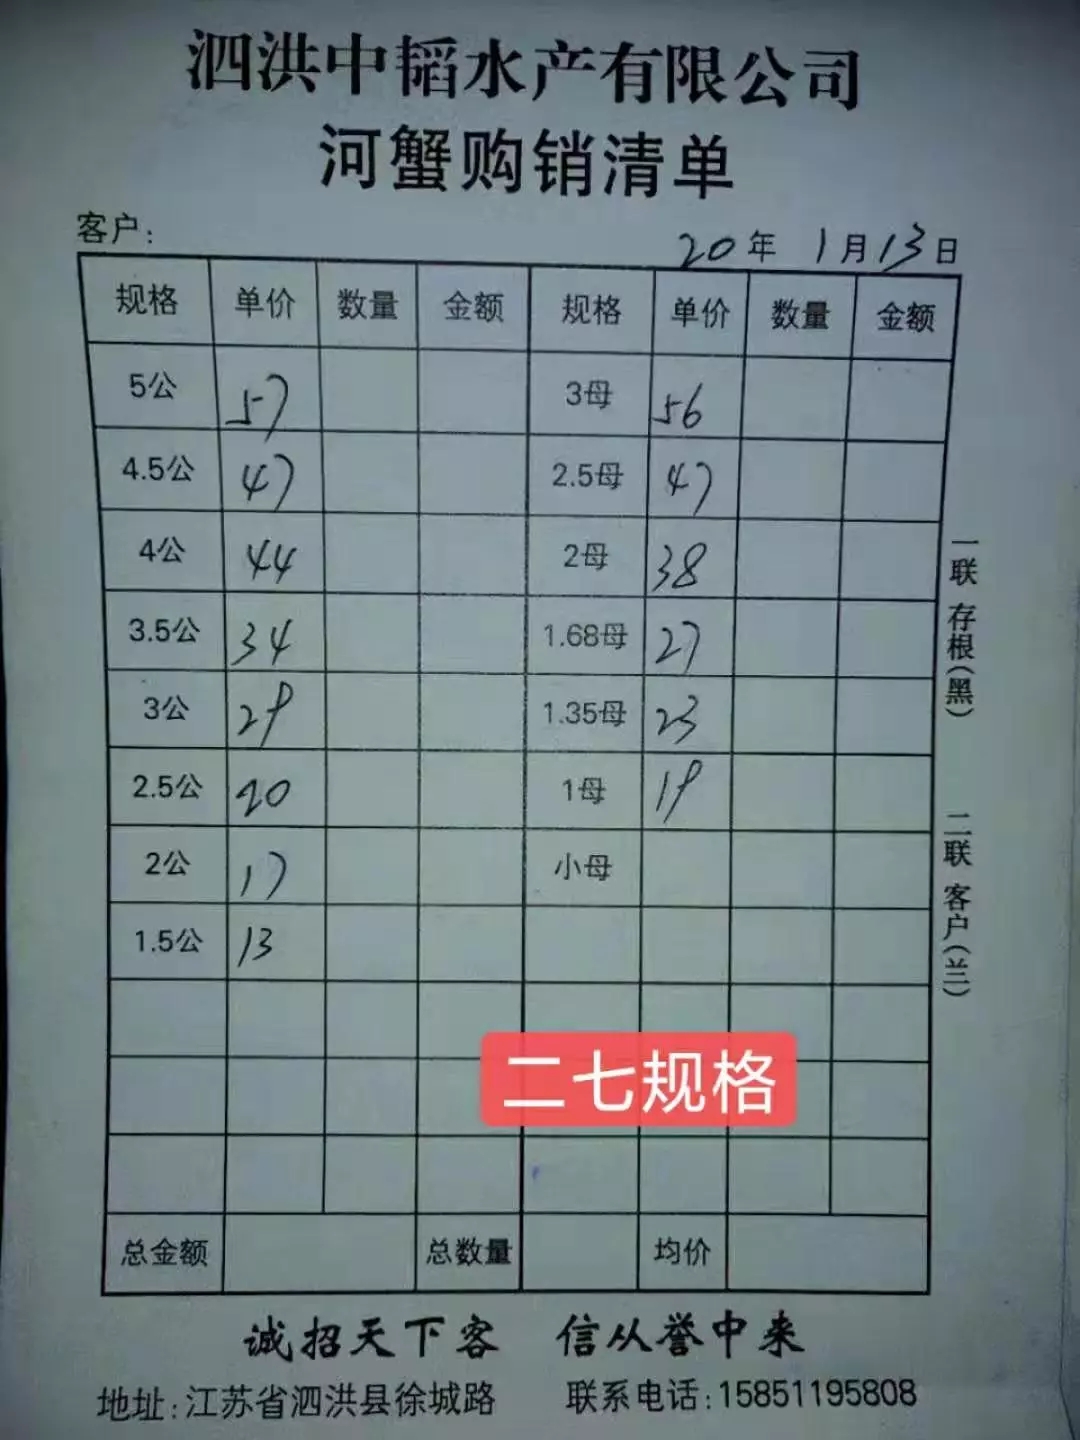 泗洪中韬水产有限公司
河蟹购销清单
客户: 20年 1月13日
规格 单价 数量 金额 规格 单价 数量 金额
5公 57 3母 56
4.5公 47 2.5母 47
4公 44 2母 38
3.5公 34 1.68母 27
3公 29 1.35母 23
2.5公 20 1母 19
2公 17 小母
1.5公 13
二七规格
总金额 总数量 均价
一联 存根(黑)
二联 客户(兰)
诚招天下客 信从誉中来
地址:江苏省泗洪县徐城路 联系电话:15851195808